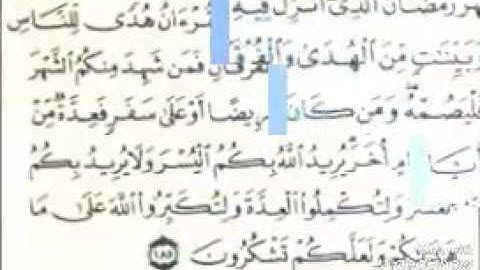 رَمَضَانَ ٱلَّذِىٓ أُنزِلَ فِيهِ هُدًى لِّلنَّاسِ
وَبَيِّنَٰتٍ مِّنَ ٱلْهُدَىٰ فَمَن شَهِدَ مِنكُمُ ٱلشَّهْرَ
فَلْيَصُمْهُ وَمَن كَانَ أَوْ عَلَىٰ سَفَرٍ فَعِدَّةٌ مِّنْ
أُخَرَ يُرِيدُ ٱللَّهُ بِكُمُ ٱلْيُسْرَ وَلَا يُرِيدُ بِكُمُ
وَلِتُكْمِلُوا۟ ٱلْعِدَّةَ وَلِتُكَبِّرُوا۟ ٱللَّهَ عَلَىٰ مَا
هَدَىٰكُمْ وَلَعَلَّكُمْ تَشْكُرُونَ ١٨٥